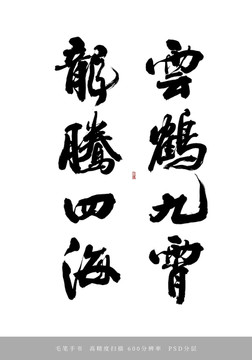 雲鶴九霄
龍騰四海
名笔手书 高精度扫描 600分辨率 PSD分层